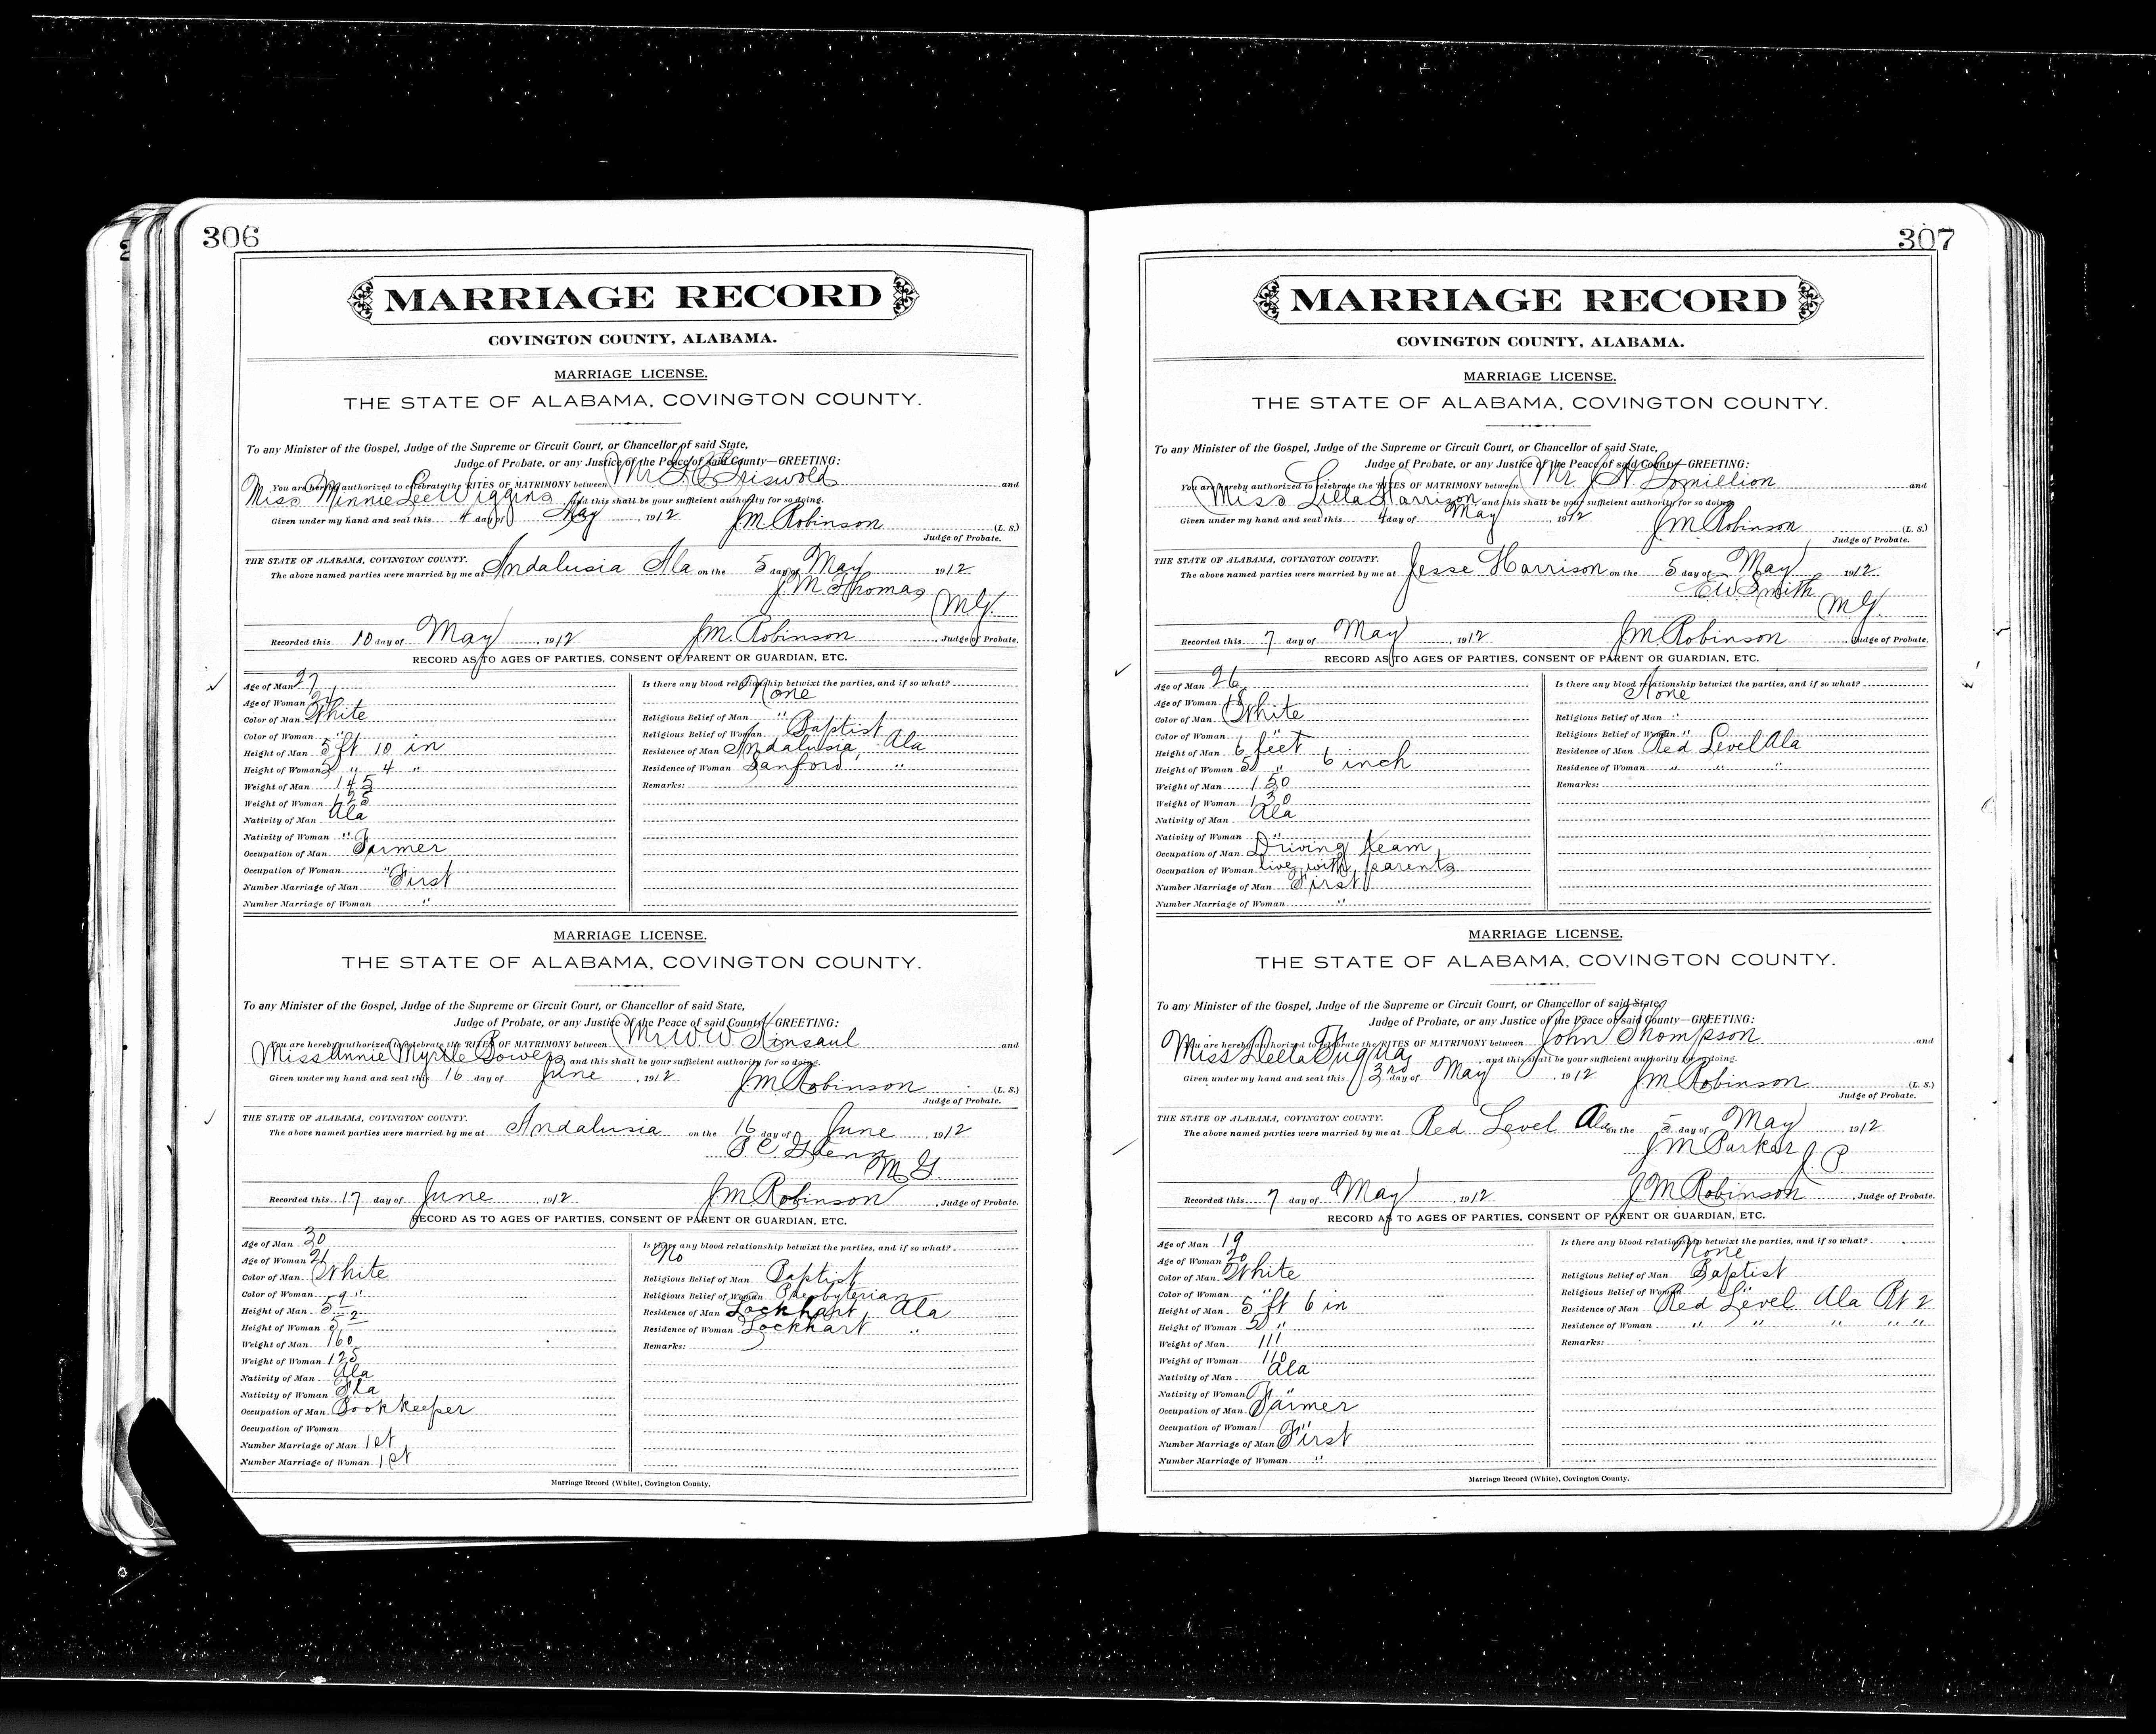 306
MARRIAGE RECORD
COVINGTON COUNTY, ALABAMA.
MARRIAGE LICENSE.
THE STATE OF ALABAMA, COVINGTON COUNTY.
To any Minister of the Gospel, Judge of the Supreme or Circuit Court, or Chancellor of said State,
Judge of Probate, or any Justice of the Peace of said County—GREETING:
You are hereby authorized to celebrate the RITES OF MATRIMONY between Mr Griswold and
Miss Minnie Lee Wiggins and this shall be your sufficient authority for so doing.
Given under my hand and seal this 4 day of May, 1912 J.M. Robinson (L. S.)
Judge of Probate.
THE STATE OF ALABAMA, COVINGTON COUNTY.
The above named parties were married by me at Andalusia Ala on the 5 day of May 1912
J. M. Thomas
M.G.
Recorded this 10 day of May, 1912 J.M. Robinson, Judge of Probate.
RECORD AS TO AGES OF PARTIES, CONSENT OF PARENT OR GUARDIAN, ETC.
Age of Man 27
Age of Woman 24
Color of Man White
Color of Woman "
Height of Man 5 ft 10 in
Height of Woman 5 " 4 "
Weight of Man 145
Weight of Woman 125
Nativity of Man Ala
Nativity of Woman "
Occupation of Man Farmer
Occupation of Woman "
Number Marriage of Man First
Number Marriage of Woman "
Is there any blood relationship betwixt the parties, and if so what?
None
Religious Belief of Man "
Religious Belief of Woman Baptist
Residence of Man Andalusia Ala
Residence of Woman Sanford "
Remarks:
MARRIAGE LICENSE.
THE STATE OF ALABAMA, COVINGTON COUNTY.
To any Minister of the Gospel, Judge of the Supreme or Circuit Court, or Chancellor of said State,
Judge of Probate, or any Justice of the Peace of said County—GREETING:
You are hereby authorized to celebrate the RITES OF MATRIMONY between Mr W.W. Kinsaul and
Miss Annie Myrtle Bowers and this shall be your sufficient authority for so doing.
Given under my hand and seal this 16 day of June, 1912 J.M. Robinson (L. S.)
Judge of Probate.
THE STATE OF ALABAMA, COVINGTON COUNTY.
The above named parties were married by me at Andalusia on the 16 day of June 1912
P. C. Glenn
M.G.
Recorded this 17 day of June 1912 J.M. Robinson, Judge of Probate.
RECORD AS TO AGES OF PARTIES, CONSENT OF PARENT OR GUARDIAN, ETC.
Age of Man 30
Age of Woman 21
Color of Man White
Color of Woman "
Height of Man 5 9
Height of Woman 5 2
Weight of Man 160
Weight of Woman 125
Nativity of Man Ala
Nativity of Woman Fla
Occupation of Man Bookkeeper
Occupation of Woman
Number Marriage of Man 1st
Number Marriage of Woman 1st
Is there any blood relationship betwixt the parties, and if so what?
No
Religious Belief of Man Baptist
Religious Belief of Woman Presbyterian
Residence of Man Lockhart, Ala
Residence of Woman Lockhart "
Remarks:
Marriage Record (White), Covington County.
307
MARRIAGE RECORD
COVINGTON COUNTY, ALABAMA.
MARRIAGE LICENSE.
THE STATE OF ALABAMA, COVINGTON COUNTY.
To any Minister of the Gospel, Judge of the Supreme or Circuit Court, or Chancellor of said State,
Judge of Probate, or any Justice of the Peace of said County—GREETING:
You are hereby authorized to celebrate the RITES OF MATRIMONY between Mr J N Lomillion and
Miss Lilla Harrison and this shall be your sufficient authority for so doing.
Given under my hand and seal this 4 day of May, 1912 J.M. Robinson (L. S.)
Judge of Probate.
THE STATE OF ALABAMA, COVINGTON COUNTY.
The above named parties were married by me at Jesse Harrison on the 5 day of May 1912
E W Smith
M.G.
Recorded this 7 day of May, 1912 J.M. Robinson, Judge of Probate.
RECORD AS TO AGES OF PARTIES, CONSENT OF PARENT OR GUARDIAN, ETC.
Age of Man 26
Age of Woman 18
Color of Man White
Color of Woman "
Height of Man 6 feet
Height of Woman 5 " 6 inch
Weight of Man 150
Weight of Woman 130
Nativity of Man Ala
Nativity of Woman "
Occupation of Man Driving team
Occupation of Woman live with parents
Number Marriage of Man First
Number Marriage of Woman "
Is there any blood relationship betwixt the parties, and if so what?
None
Religious Belief of Man "
Religious Belief of Woman "
Residence of Man Red Level Ala
Residence of Woman " " "
Remarks:
MARRIAGE LICENSE.
THE STATE OF ALABAMA, COVINGTON COUNTY.
To any Minister of the Gospel, Judge of the Supreme or Circuit Court, or Chancellor of said State,
Judge of Probate, or any Justice of the Peace of said County—GREETING:
You are hereby authorized to celebrate the RITES OF MATRIMONY between John Thompson and
Miss Della Fuqua and this shall be your sufficient authority for so doing.
Given under my hand and seal this 3rd day of May, 1912 J.M. Robinson (L. S.)
Judge of Probate.
THE STATE OF ALABAMA, COVINGTON COUNTY.
The above named parties were married by me at Red Level Ala on the 5 day of May 1912
J M Parker J. P
Recorded this 7 day of May, 1912 J.M. Robinson, Judge of Probate.
RECORD AS TO AGES OF PARTIES, CONSENT OF PARENT OR GUARDIAN, ETC.
Age of Man 19
Age of Woman 20
Color of Man White
Color of Woman "
Height of Man 5 ft 6 in
Height of Woman 5 "
Weight of Man 111
Weight of Woman 110
Nativity of Man Ala
Nativity of Woman "
Occupation of Man Farmer
Occupation of Woman "
Number Marriage of Man First
Number Marriage of Woman "
Is there any blood relationship betwixt the parties, and if so what?
None
Religious Belief of Man Baptist
Religious Belief of Woman "
Residence of Man Red Level Ala Rt 2
Residence of Woman " " " " "
Remarks:
Marriage Record (White), Covington County.